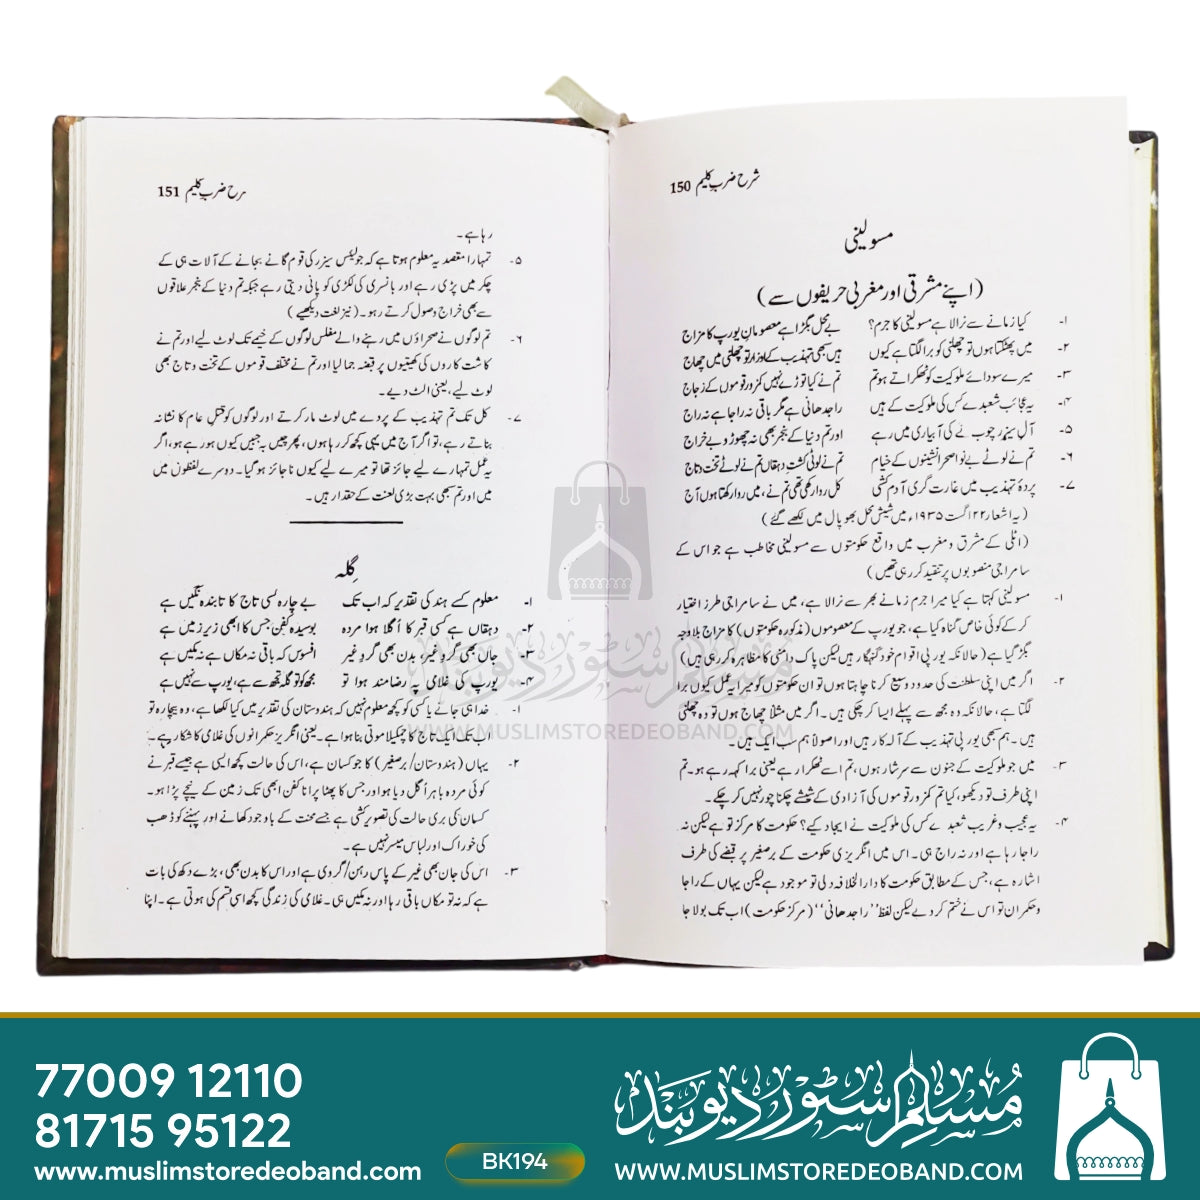 شرح ضربِ کلیم 150
مسولینی
(اپنے مشرقی اور مغربی حریفوں سے)
۱- کیا زمانے سے نرالا ہے مسولینی کا جرم؟ بے محل بگڑا ہے معصومانِ یورپ کا مزاج
۲- میں پھٹکتا ہوں تو چھلنی کو برا لگتا ہے کیوں ہیں سبھی تہذیب کے اوزار تو چھلنی میں چھاج
۳- میرے سودائے ملوکیت کو ٹھکراتے ہو تم تم نے کیا توڑے نہیں کمزور قوموں کے زجاج
۴- یہ عجائب شعبدے کس کی ملوکیت کے ہیں راجدھانی ہے مگر باقی نہ راجا ہے نہ راج
۵- آلِ سیزر چوبِ نے کی آبیاری میں رہے اور تم دنیا کے بنجر بھی نہ چھوڑو بے خراج
۶- تم نے لوٹے بے نوا صحرا نشینوں کے خیام تم نے لوٹی کشتِ دہقاں تم نے لوٹے تخت و تاج
۷- پردۂ تہذیب میں غارت گری آدم کشی کل روا رکھی تھی تم نے، میں روا رکھتا ہوں آج
(یہ اشعار ۲۲ اگست ۱۹۳۵ء میں شیش محل بھوپال میں لکھے گئے)
(اٹلی کے مشرق و مغرب میں واقع حکومتوں سے مسولینی مخاطب ہے جو اس کے
سامراجی منصوبوں پر تنقید کر رہی تھیں)
۱- مسولینی کہتا ہے کیا میرا جرم زمانے بھر سے نرالا ہے، میں نے سامراجی طرز اختیار
کر کے کوئی خاص گناہ کیا ہے، جو یورپ کے معصوموں (مذکورہ حکومتوں) کا مزاج بلاوجہ
بگڑ گیا ہے (حالانکہ یورپی اقوام خود گنہگار ہیں لیکن پاک دامنی کا مظاہرہ کر رہی ہیں)
۲- اگر میں اپنی سلطنت کی حدود وسیع کرنا چاہتا ہوں تو ان حکومتوں کو میرا یہ عمل کیوں برا
لگتا ہے، حالانکہ وہ مجھ سے پہلے ایسا کر چکی ہیں۔ اگر میں مثلاً چھاج ہوں تو وہ چھلنی
ہیں۔ ہم سبھی یورپی تہذیب کے آلہ کار ہیں اور اصولاً ہم سب ایک ہیں۔
۳- میں جو ملوکیت کے جنون سے سرشار ہوں، تم اسے ٹھکرا رہے یعنی برا کہہ رہے ہو۔ تم
اپنی طرف تو دیکھو، کیا تم کمزور قوموں کی آزادی کے شیشے چکنا چور نہیں کر چکے۔
۴- یہ عجیب و غریب شعبدے کس کی ملوکیت نے ایجاد کیے؟ حکومت کا مرکز تو ہے لیکن نہ
راجا رہا ہے اور نہ راج ہی۔ اس میں انگریزی حکومت کے برصغیر پر قبضے کی طرف
اشارہ ہے، جس کے مطابق حکومت کا دارالخلافہ دلی تو موجود ہے لیکن یہاں کے راجا
و حکمران تو اس نے ختم کر دیے لیکن لفظ ’’راجدھانی‘‘ (مرکز حکومت) اب تک بولا جا
شرح ضربِ کلیم 151
رہا ہے۔
۵- تمہارا مقصد یہ معلوم ہوتا ہے کہ جولیئس سیزر کی قوم گانے بجانے کے آلات ہی کے
چکر میں پڑی رہے اور بانسری کی لکڑی کو پانی دیتی رہے جبکہ تم دنیا کے بنجر علاقوں
سے بھی خراج وصول کرتے رہو۔ (نیز لغت دیکھیے)
۶- تم لوگوں نے صحراؤں میں رہنے والے مفلس لوگوں کے خیمے تک لوٹ لیے اور تم نے
کاشت کاروں کی کھیتیوں پر قبضہ جما لیا اور تم نے مختلف قوموں کے تخت و تاج بھی
لوٹ لیے، یعنی الٹ دیے۔
۷- کل تک تم تہذیب کے پردے میں لوٹ مار کرتے اور لوگوں کو قتل عام کا نشانہ
بناتے رہے، تو اگر آج میں یہی کچھ کر رہا ہوں، پھر چیں بہ جبیں کیوں ہو رہے ہو، اگر
یہ عمل تمہارے لیے جائز تھا تو میرے لیے کیوں ناجائز ہو گیا۔ دوسرے لفظوں میں
میں اور تم سبھی بہت بڑی لعنت کے حقدار ہیں۔
گِلہ
۱- معلوم کسے ہند کی تقدیر کہ اب تک بے چارہ کسی تاج کا تابندہ نگیں ہے
۲- دہقاں ہے کسی قبر کا اُگلا ہوا مردہ بوسیدہ کفن جس کا ابھی زیرِ زمیں ہے
۳- جاں بھی گروِ غیر، بدن بھی گروِ غیر افسوس کہ باقی نہ مکاں ہے نہ مکیں ہے
۴- یورپ کی غلامی پہ رضامند ہوا تو مجھ کو تو گلہ تجھ سے ہے، یورپ سے نہیں ہے
۱- خدا ہی جانے یا کسی کو کچھ معلوم نہیں کہ ہندوستان کی تقدیر میں کیا لکھا ہے، وہ بیچارہ تو
اب تک ایک تاج کا چمکیلا موتی بنا ہوا ہے۔ یعنی انگریز حکمرانوں کی غلامی کا شکار ہے۔
۲- یہاں (ہندوستان/برصغیر) کا جو کسان ہے، اس کی حالت کچھ ایسی ہے جیسے قبر نے
کوئی مردہ باہر اُگل دیا ہو اور جس کا پھٹا پرانا کفن ابھی تک زمین کے نیچے پڑا ہو۔
کسان کی بری حالت کی تصویر کشی ہے جسے محنت کے باوجود کھانے اور پہننے کو ڈھب
کی خوراک اور لباس میسر نہیں ہے۔
۳- اس کی جان بھی غیر کے پاس رہن/گروی ہے اور اس کا بدن بھی، بڑے دکھ کی بات
ہے کہ نہ تو مکاں باقی رہا اور نہ مکیں ہی۔ غلامی کی زندگی کچھ اسی قسم کی ہوتی ہے۔ اپنا
مسلم سٹور دیوبند
WWW.MUSLIMSTOREDEOBAND.COM
77009 12110
81715 95122
www.muslimstoredeoband.com
BK194
مسلم سٹور دیوبند
WWW.MUSLIMSTOREDEOBAND.COM